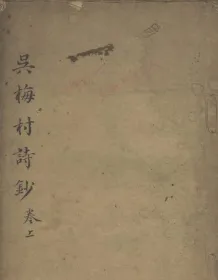 吳梅村詩鈔 卷上